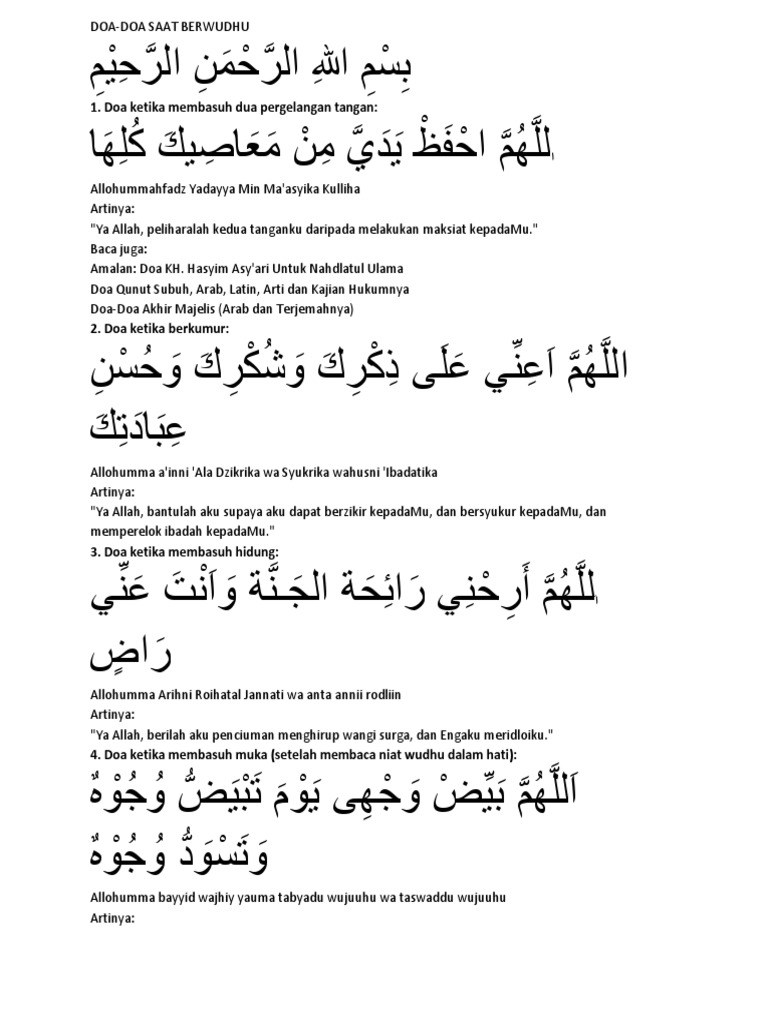 DOA-DOA SAAT BERWUDHU
بِسْمِ اللهِ الرَّحْمَنِ الرَّحِيْمِ
1. Doa ketika membasuh dua pergelangan tangan:
للَّهُمَّ احْفَظْ يَدَيَّ مِنْ مَعَاصِيكَ كُلِهَا
Allohummahfadz Yadayya Min Ma'asyika Kulliha
Artinya:
"Ya Allah, peliharalah kedua tanganku daripada melakukan maksiat kepadaMu."
Baca juga:
Amalan: Doa KH. Hasyim Asy'ari Untuk Nahdlatul Ulama
Doa Qunut Subuh, Arab, Latin, Arti dan Kajian Hukumnya
Doa-Doa Akhir Majelis (Arab dan Terjemahnya)
2. Doa ketika berkumur:
اللَّهُمَّ اَعِنِّي عَلَى ذِكْرِكَ وَشُكْرِكَ وَحُسْنِ
عِبَادَتِكَ
Allohumma a'inni 'Ala Dzikrika wa Syukrika wahusni 'Ibadatika
Artinya:
"Ya Allah, bantulah aku supaya aku dapat berzikir kepadaMu, dan bersyukur kepadaMu, dan
memperelok ibadah kepadaMu."
3. Doa ketika membasuh hidung:
للَّهُمَّ أَرِحْنِي رَائِحَة الجَـنَّة وَاَنْتَ عَنِّي
رَاضٍ
Allohumma Arihni Roihatal Jannati wa anta annii rodliin
Artinya:
"Ya Allah, berilah aku penciuman menghirup wangi surga, dan Engaku meridloiku."
4. Doa ketika membasuh muka (setelah membaca niat wudhu dalam hati):
اَللَّهُمَّ بَيِّضْ وَجْهِى يَوْمَ تَبْيَضُّ وُجُوْهٌ
وَتَسْوَدُّ وُجُوْهٌ
Allohumma bayyid wajhiy yauma tabyadu wujuuhu wa taswaddu wujuuhu
Artinya: